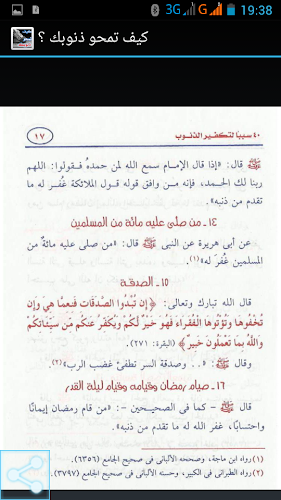 3G G 19:38
كيف تمحو ذنوبك ؟
٤٠ سببًا لتكفير الذنوب
١٧
ﷺ قال: «إذا قال الإمام سمع الله لمن حمدهُ فقولوا: اللهم
ربنا لك الحمد، فإنه من وافق قوله قول الملائكة غُفر له ما
تقدم من ذنبه».
١٤ - من صلى عليه مائة من المسلمين
عن أبي هريرة عن النبي ﷺ قال: «من صلى عليه مائةٌ من
المسلمين غُفرَ له»(١).
١٥ - الصدقة
قال الله تبارك وتعالى: ﴿إِن تُبْدُوا الصَّدَقَاتِ فَنِعِمَّا هِيَ وَإِن
تُخْفُوهَا وَتُؤْتُوهَا الْفُقَرَاءَ فَهُوَ خَيْرٌ لَّكُمْ وَيُكَفِّرُ عَنكُم مِّن سَيِّئَاتِكُمْ
وَاللَّهُ بِمَا تَعْمَلُونَ خَبِيرٌ﴾ (البقرة: ٢٧١).
وقال ﷺ: «.. وصدقة السر تطفئ غضب الرب»(٢).
١٦ - صيام رمضان وقيامه وقيام ليلة القدر
قال ﷺ - كما في الصحيحين -: «من قام رمضان إيمانًا
واحتسابًا، غفر الله له ما تقدم من ذنبه».
(١) رواه ابن ماجة، وصححه الألباني في صحيح الجامع (٦٣٥٦).
(٢) رواه الطبراني في الكبير، وحسنه الألباني في صحيح الجامع (٣٧٩٧).